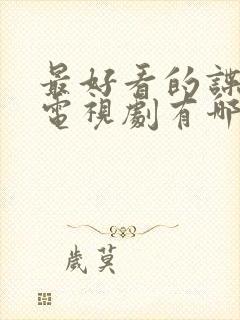 最好看的諜
電視劇有哪
歲莫